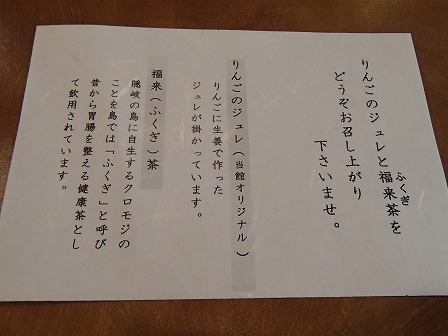 りんごのジュレと福来茶を
ふくぎ
どうぞお召し上がり
下さいませ。
りんごのジュレ(当館オリジナル)
りんごに生姜で作った
ジュレが掛かっています。
福来(ふくぎ)茶
隠岐の島に自生するクロモジの
ことを島では「ふくぎ」と呼び
昔から胃腸を整える健康茶とし
て飲用されています。